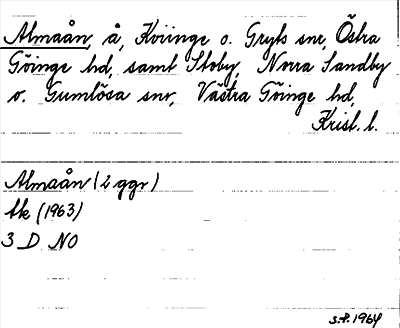 Almaån, å, Kviinge o. Gryts snr, Östra
Göinge hd, samt Stoby, Norra Sandby
o. Gumlösa snr, Västra Göinge hd,
Krist. l.
Almaån (2 ggr)
Ek (1963)
3 D NO
1964